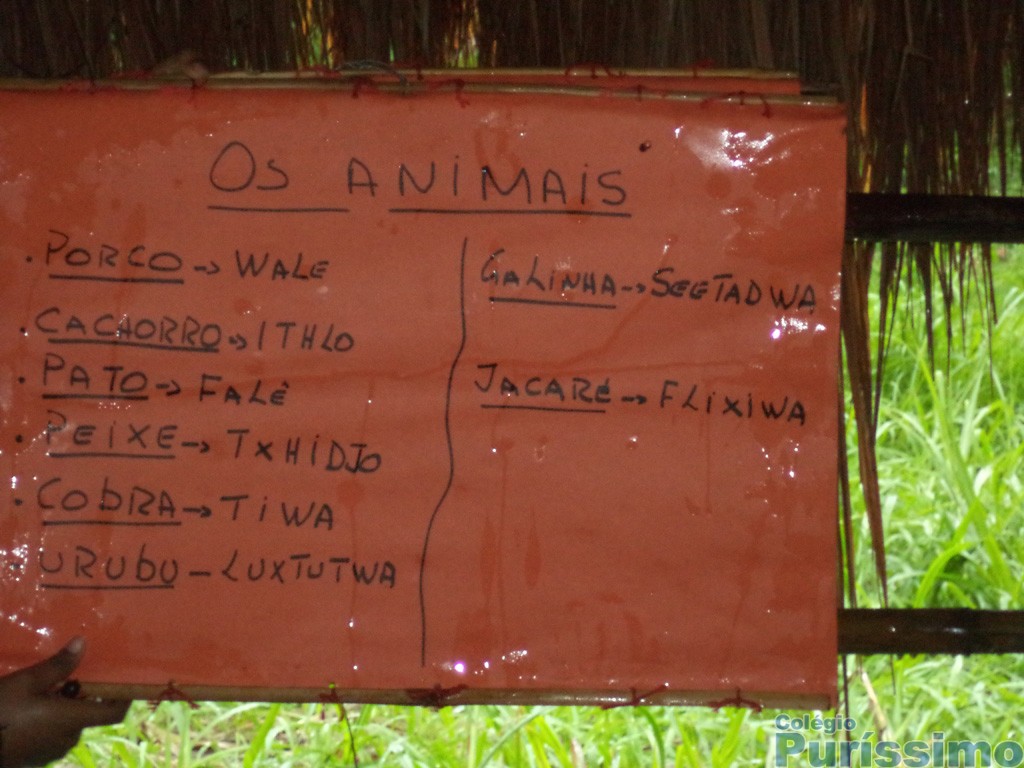 OS ANIMAIS
. PORCO -> WALE
. CACHORRO -> ITHLO
. PATO -> FALÊ
. PEIXE -> TXHIDJO
. COBRA -> TIWA
. URUBU - LUXTUTWA
GALINHA -> SEETADWA
JACARÉ -> FLIXIWA
Colégio
Puríssimo